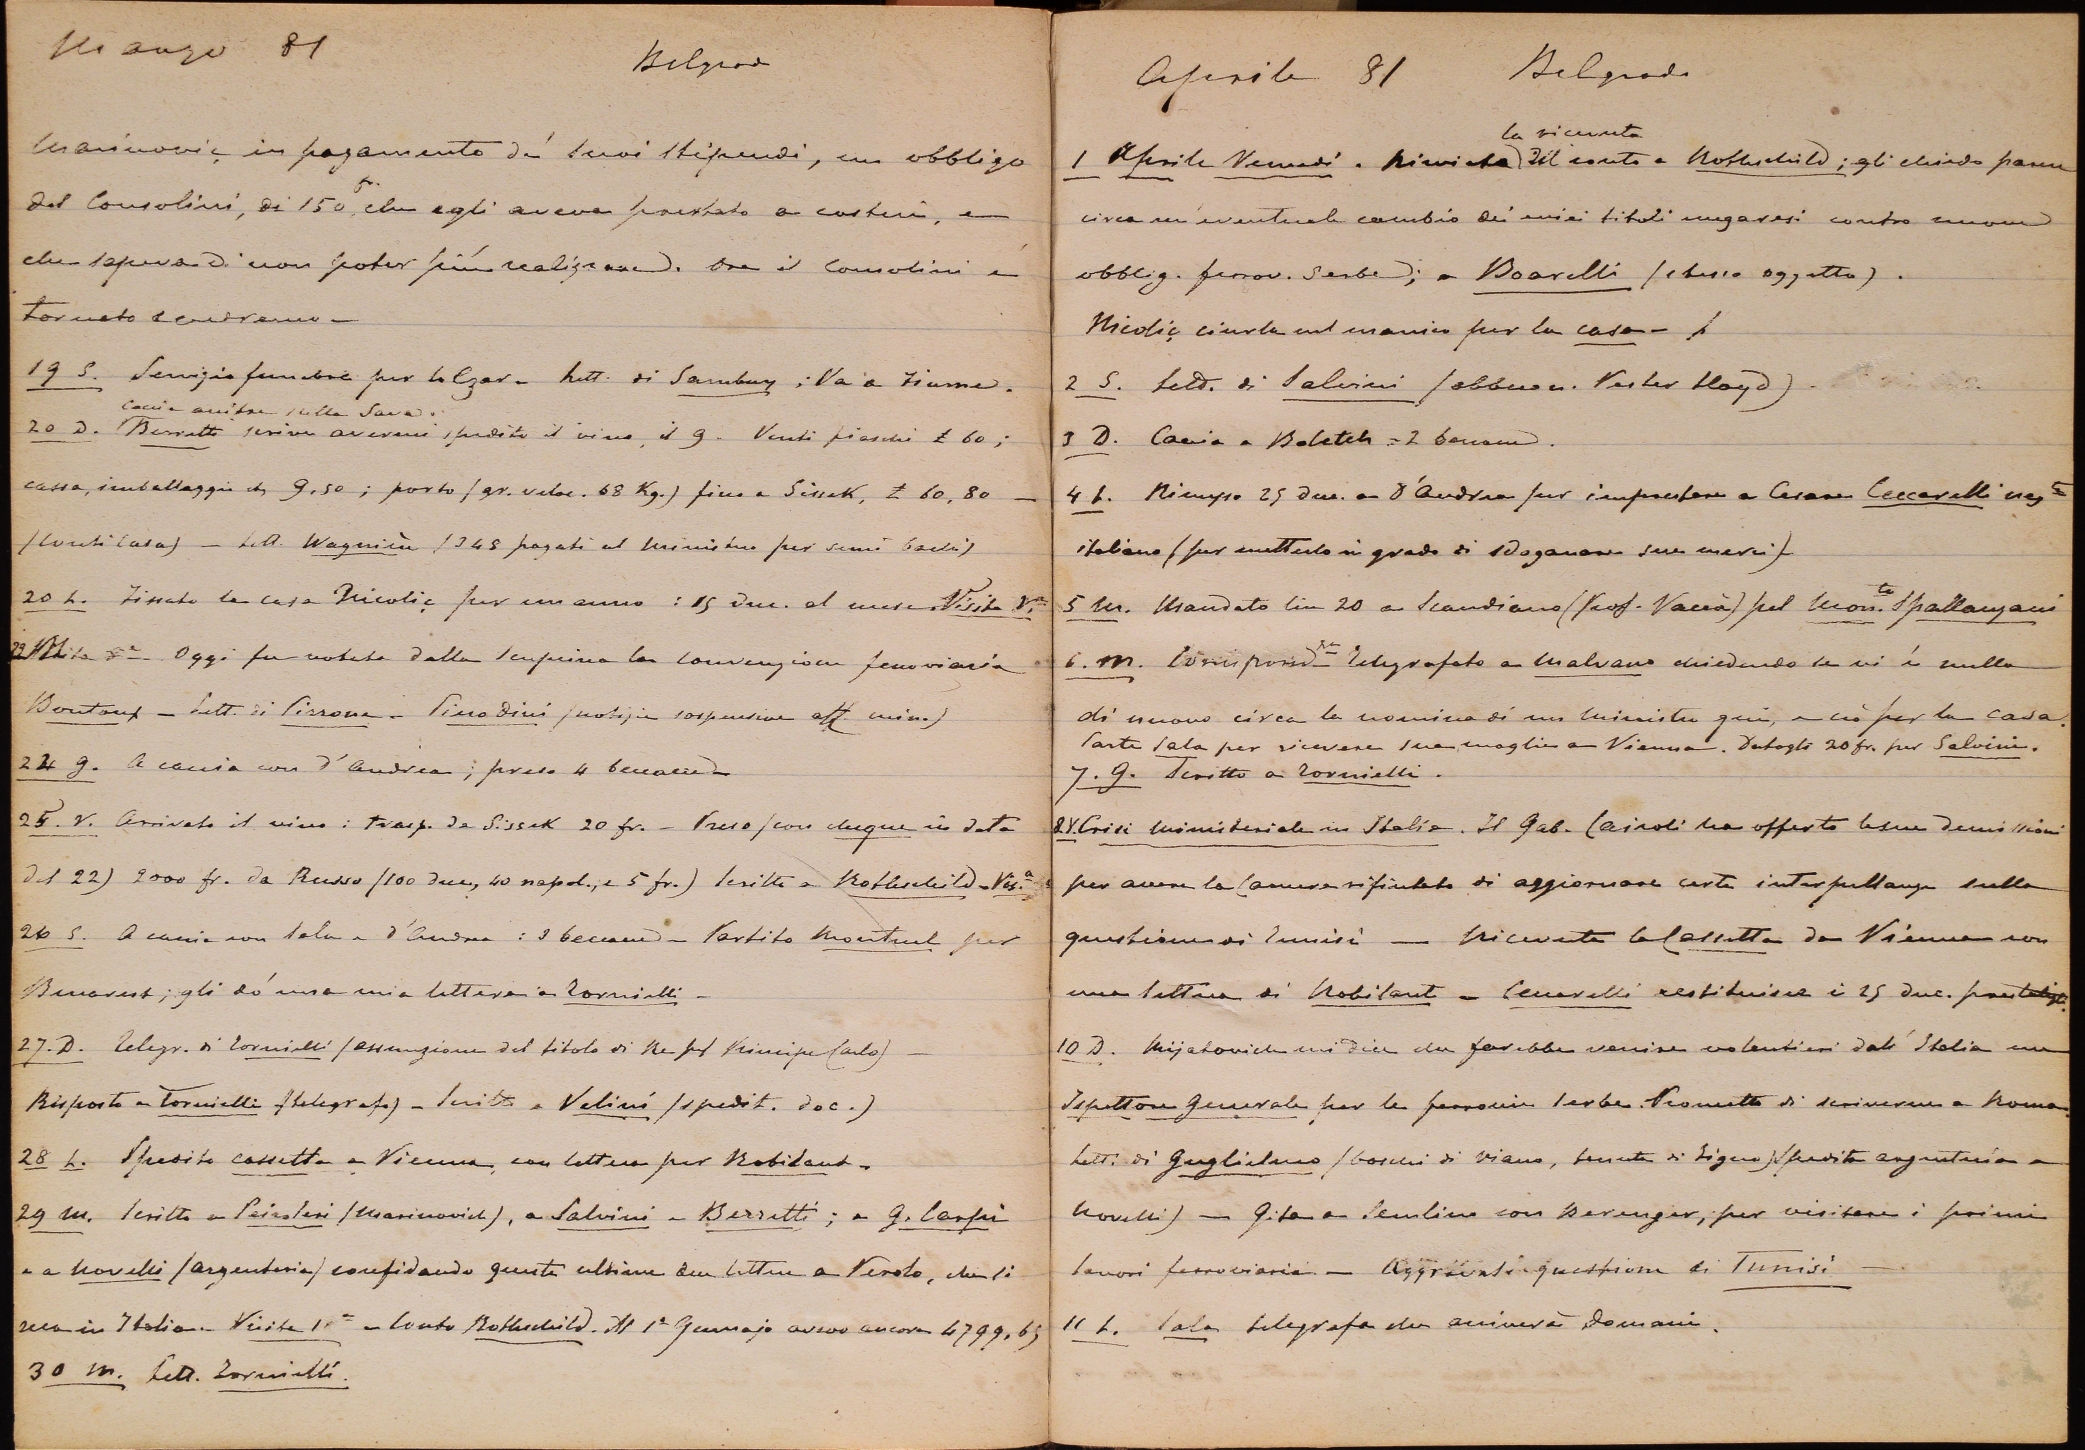 Marzo 81
Belgrado
Marinoviç in pagamento de' suoi stipendi, un obbligo
del Consolini, di 150 fr. che egli aveva prestato a costui, e
che sapeva di non poter più realizzare. Ora il Consolini è
tornato e vedremo —
19 S. Servizio funebre per lo Czar — Lett. di Sambuy ; Va a Fiume.
Caccia anitre sulla Sava.
20 D. Berretti scrive avermi spedito il vino, il 9. Venti fiaschi £ 60 ;
cassa, imballaggio etc 9,50 ; porto (gr. veloc. 68 Kg.) fino a Sissek, £ 60,80 —
(Conti Casa) — Lett. Wagnière (348 pagati al Ministro per semi bachi)
20 L. Fissato la casa Nicoliç per un anno : 15 duc. al mese — Visita
Oggi fu votata dalla Scupcina la convenzione ferroviaria
Bontoux — Lett. di Pirrone — Pinodini (notizie sospensive aff. min.)
24 G. A caccia con d'Andrea ; preso 4 beccacce —
25. V. Arrivato il vino : trasp. da Sissek 20 fr. — Preso (con cheque in data
del 22) 2000 fr. da Russo (100 duc., 40 napol., e 5 fr.) Scritto a Rothschild — Vis.a
26 S. A caccia con Sala e d'Andrea : 3 beccacce — Partito Montreal per
Bucarest ; gli dò una mia lettera a Tornielli —
27. D. Telegr. di Tornielli (assunzione del titolo di Re pel Principe Carlo) —
Risposto a Tornielli (telegrafo) — Scritto a Velini (spedit. doc.)
28 L. Spedito cassetta a Vienna, con lettera per Robilant —
29 M. Scritto a (Marinovich), a Salvini — Berretti ; a G. Carpi
e a Novelli (argenteria) confidando queste ultime due lettere a Verolo, che si
reca in Italia — Visita 1a — Conto Rothschild. Al 1° Gennajo avevo ancora 4799,65
30 M. Lett. Tornielli.
Aprile 81 Belgrado
la ricevuta
1 Aprile Venerdì. Rinviata del conto a Rothschild ; gli chiedo parere
circa un'eventuale cambio dei miei titoli ungaresi contro nuove
obblig. ferrov. Serbe ; a Boarelli (stesso oggetto).
Nicoliç ciurla nel manico per la casa —
2 S. Lett. di Salvini (abbuon. Pester Lloyd)
3 D. Caccia a Boletch = 2 beccacce.
4 L. Rimesso 25 duc. a d'Andrea per imprestare a Cesare Ceccarelli neg.te
italiano (per metterlo in grado di sdoganare sue merci) —
5 M. Mandato lire 20 a Scandiano (Prof. Vaccà) pel Mon.to Spallanzani
6. M. Telegrafato a Malvano chiedendo se vi è nulla
di nuovo circa la nomina di un Ministro qui, e ciò per la casa.
Parte Sala per ricevere sua moglie a Vienna. Datogli 20 fr. per Salvini.
7. G. Scritto a Tornielli.
8. V. Crisi ministeriale in Italia. Il Gab. Cairoli ha offerto le sue demissioni
per avere la Camera rifiutato di aggiornare certe interpellanze sulla
questione di Tunisi — Ricevuta la Cassetta da Vienna con
una lettera di Robilant — Ceccarelli restituisce i 25 duc. prestatigli.
10 D. Mijatovich mi dice che farebbe venire volentieri dall'Italia un
Ispettore Generale per le ferrovie serbe. Prometto di scriverne a Roma.
Lett. di Guglielmo (boschi di Viano, tenuta di Signa) Spedita argenteria a
Novelli) — Gita a Semlino con Berenger, per visitare i primi
lavori ferroviari — Aggravasi questione di Tunisi —
11 L. Sala telegrafa che arriverà domani.